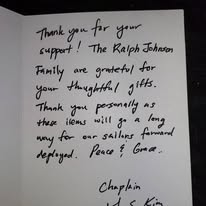 Thank you for your
support! The Ralph Johnson
Family are grateful for
your thoughtful gifts.
Thank you personally as
these items will go a long
way for our sailors forward
deployed. Peace & Grace.
Chaplain
Kim